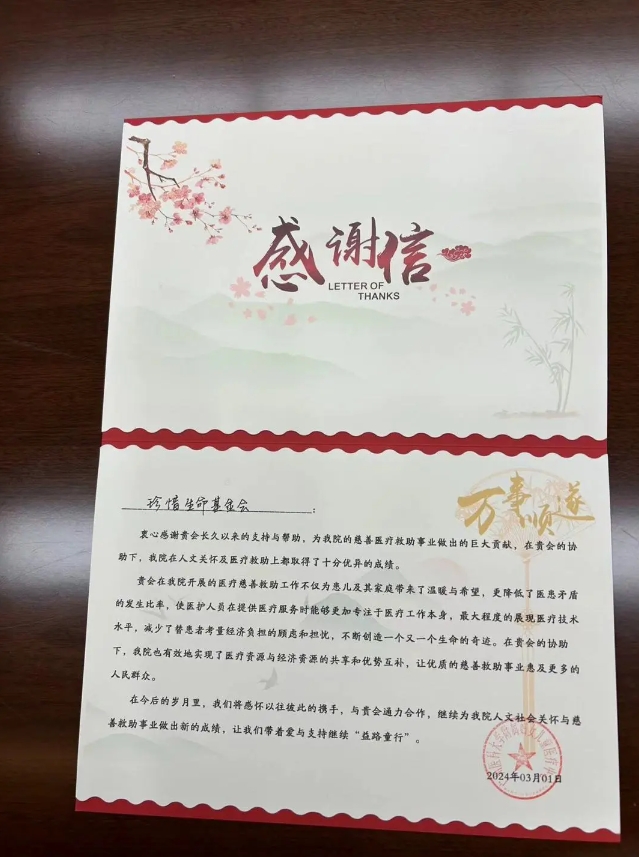 感谢信
LETTER OF
THANKS
万事顺遂
珍惜生命基金会：
衷心感谢贵会长久以来的支持与帮助，为我院的慈善医疗救助事业做出的巨大贡献，在贵会的协
助下，我院在人文关怀及医疗救助上都取得了十分优异的成绩。
贵会在我院开展的医疗慈善救助工作不仅为患儿及其家庭带来了温暖与希望，更降低了医患矛盾
的发生比率，使医护人员在提供医疗服务时能够更加专注于医疗工作本身，最大程度的展现医疗技术
水平，减少了替患者考量经济负担的顾虑和担忧，不断创造一个又一个生命的奇迹。在贵会的协助
下，我院也有效地实现了医疗资源与经济资源的共享和优势互补，让优质的慈善救助事业惠及更多的
人民群众。
在今后的岁月里，我们将感怀以往彼此的携手，与贵会通力合作，继续为我院人文社会关怀与慈
善救助事业做出新的成绩，让我们带着爱与支持继续“益路童行”。
2024年03月01日